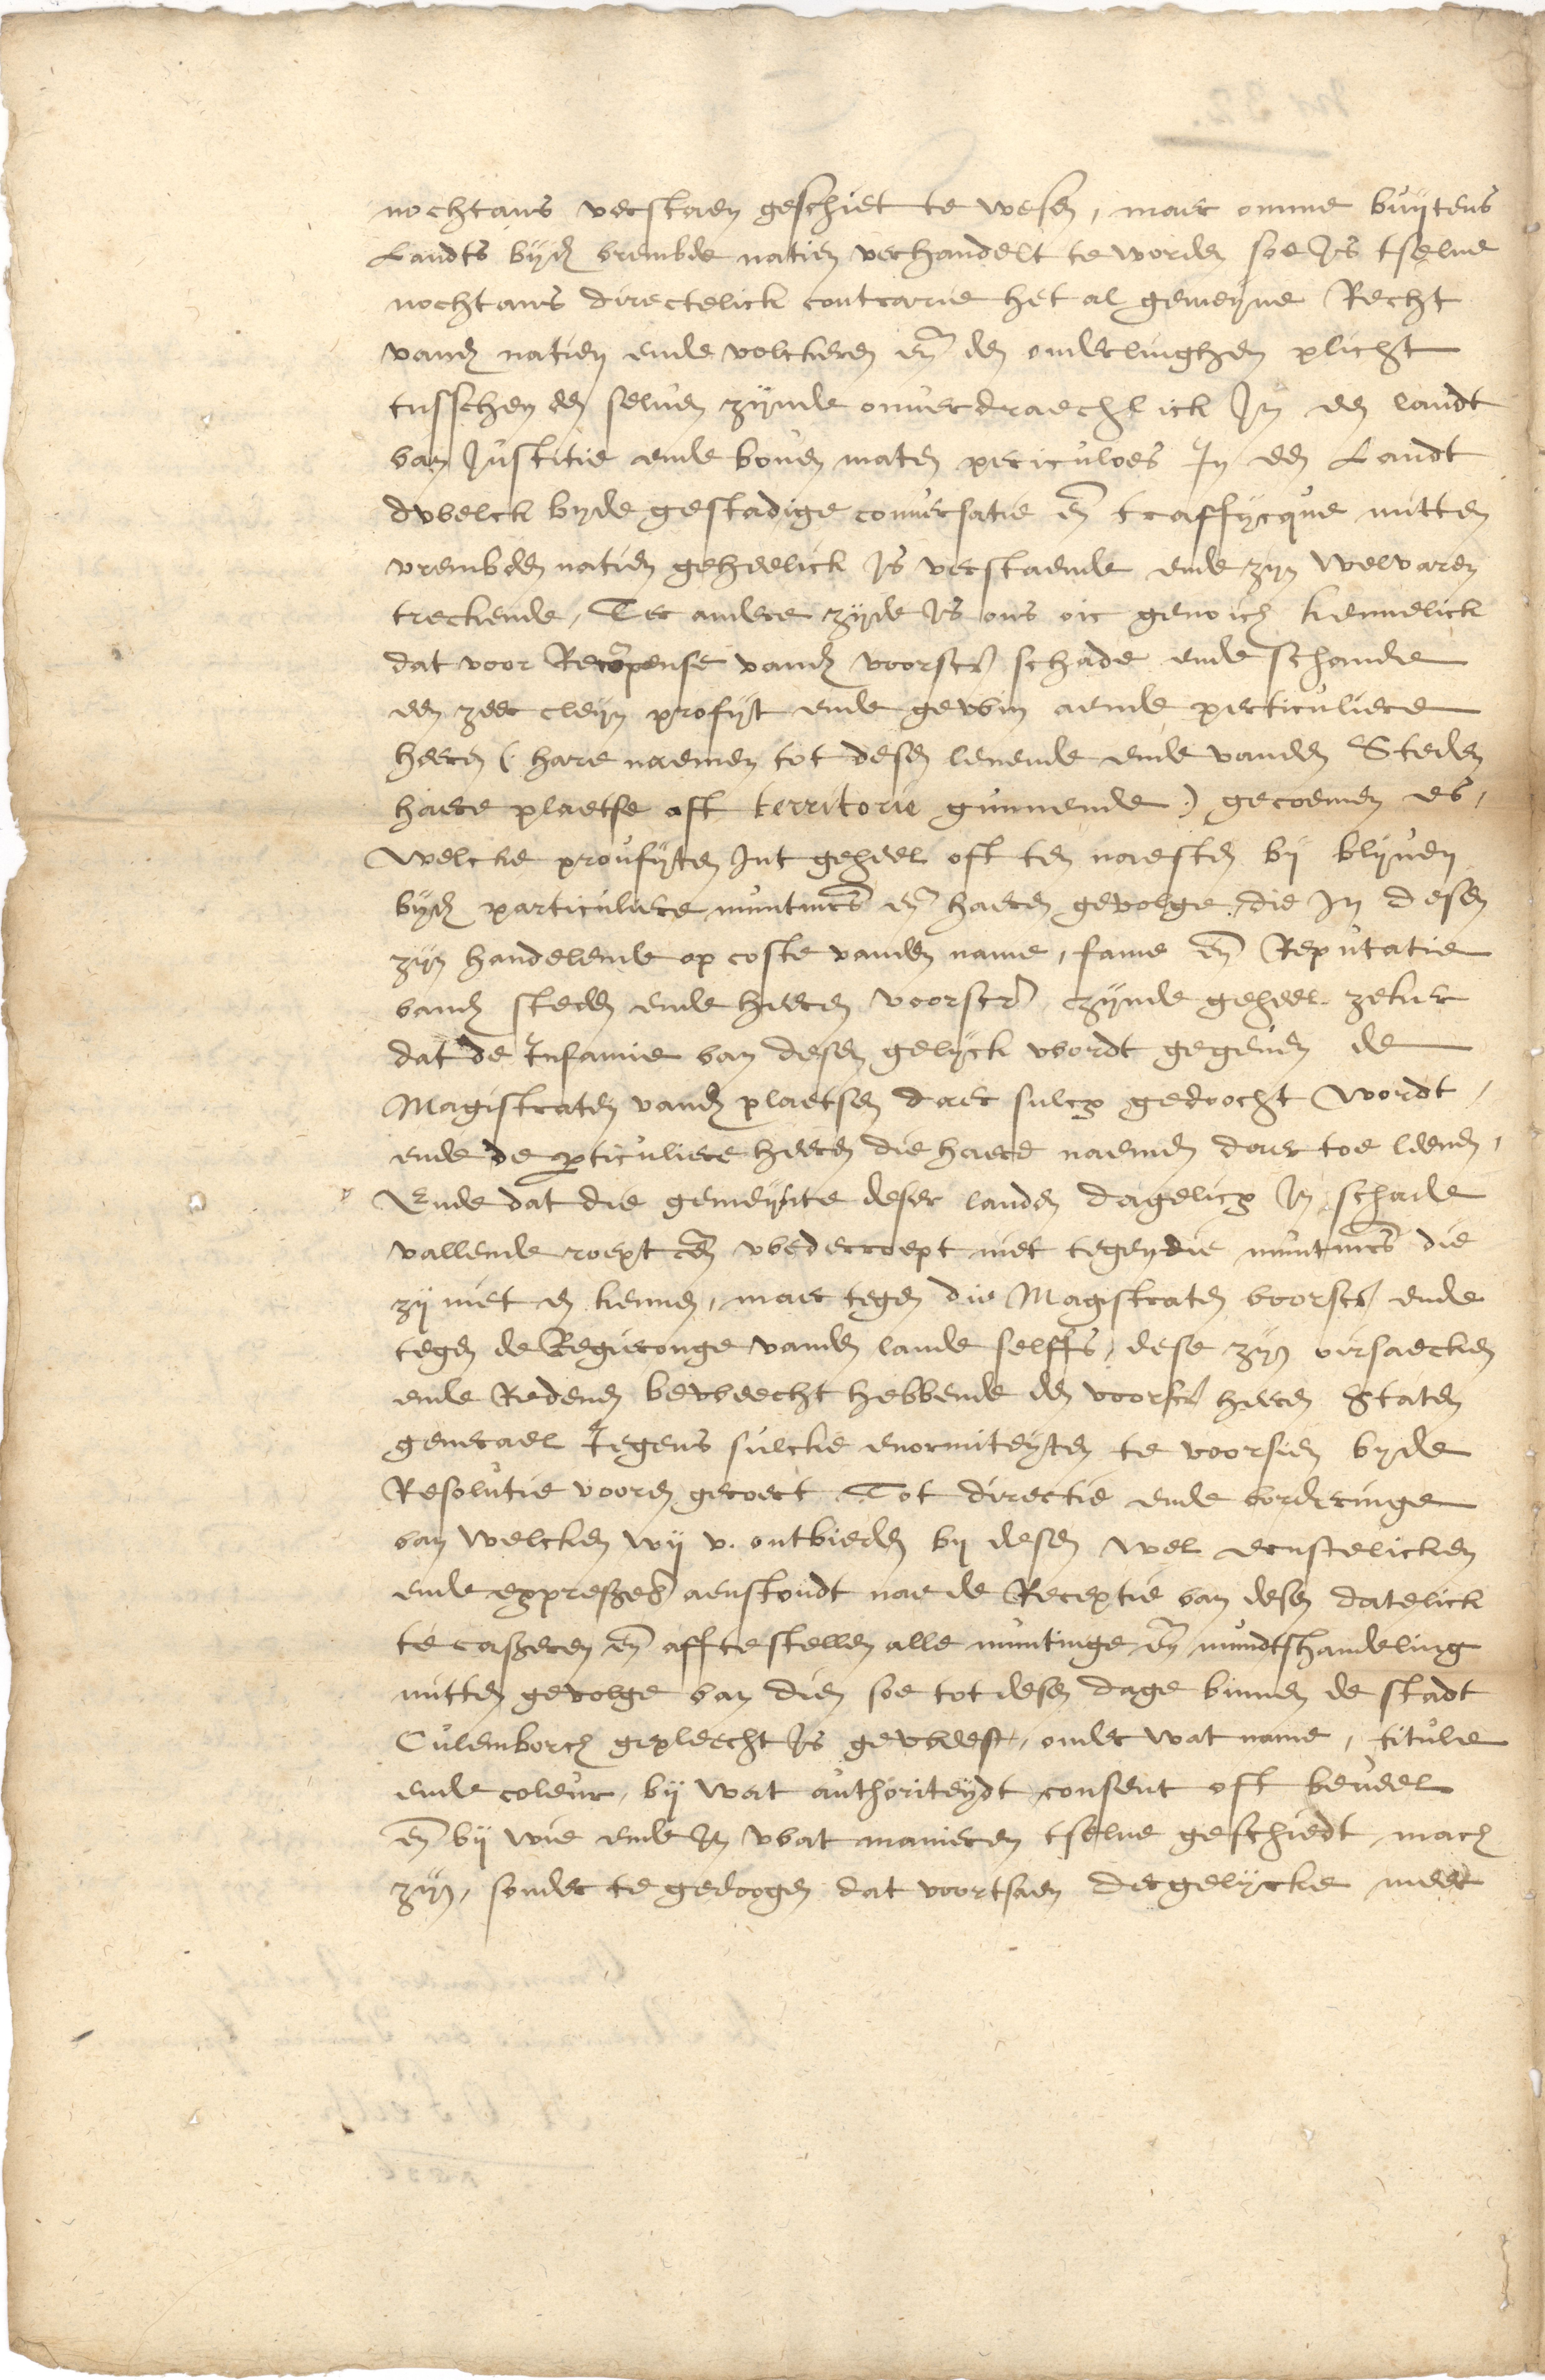 nochtans verstaen geschiet te wesen, maer omme buijtens
Landts bijd vrembde natien verhandelt te worden soe Is tselue
nochtans directelick contrarie het al gemeijne Recht
vand natien ende volckeren en den onderlinghen plicht
tusschen den seluen zijnde onuerdraechlick In een landt
van Justitie ende bouen maten periculoes In een Landt
dwelck byde gestadige conuersatie en traffijcque mitten
vrembden natien geheelick Is verstaende ende zijn welvaren
treckende, Ter andere zijde Is ons oic genoich kennelick
dat voor Recompense vand voorscr schade ende schande
een zeer cleijn profijt ende gewin aende perticuliere
heeren (hare naemen tot desen lenende ende vanden Steden
haere plaetse oft territorie gunnende) gecoemen es,
Welcke proufijten Int geheel oft ten naesten bij blijuen
bijd particuliere muntmrs en haeren gevolge, die In desen
zijn handelende op coste vanden name, fame en Reputatie
vand steden ende heeren voorscr zijnde geheel zeker
dat de Infamie van desen gelijck wordt gegeuen de
Magistraten vand plaetsen daer sulcx gedoocht wordt,
ende de perticuliere heeren die haere naemen daer toe leenen,
Ende dat die gemeijnte deser landen dagelicx In schade
vallende roept en wederroept niet tegen die muntmrs die
zij niet en kennen, maer tegen die Magistraten voorscr ende
tegen de Regieronge vanden lande selffs, dese zijn oirsaecken
ende Redenen beweecht hebbende den voorscr heeren Staten
generael Jegens sulcke enormiteijten te voorsien byde
Resolutie vooren geroert Tot directie ende vorderinge
van welcken wij v. ontbieden bij desen wel ernstelicken
ende expresselick aenstondt nae de Receptie van desen datelick
te casseren en aff te stellen alle muntinge en mundtshandeling
mitten gevolge van dien soe tot desen dage binnen de stadt
Culemborch gepleecht Is geweest, onder wat name, titule
ende coleur, bij wat authoriteijdt consent oft beueel
en bij wie ende In wat manieren tselue geschiedt mach
zijn, sonder te gedoogen dat voortsaen dergelijcke meer